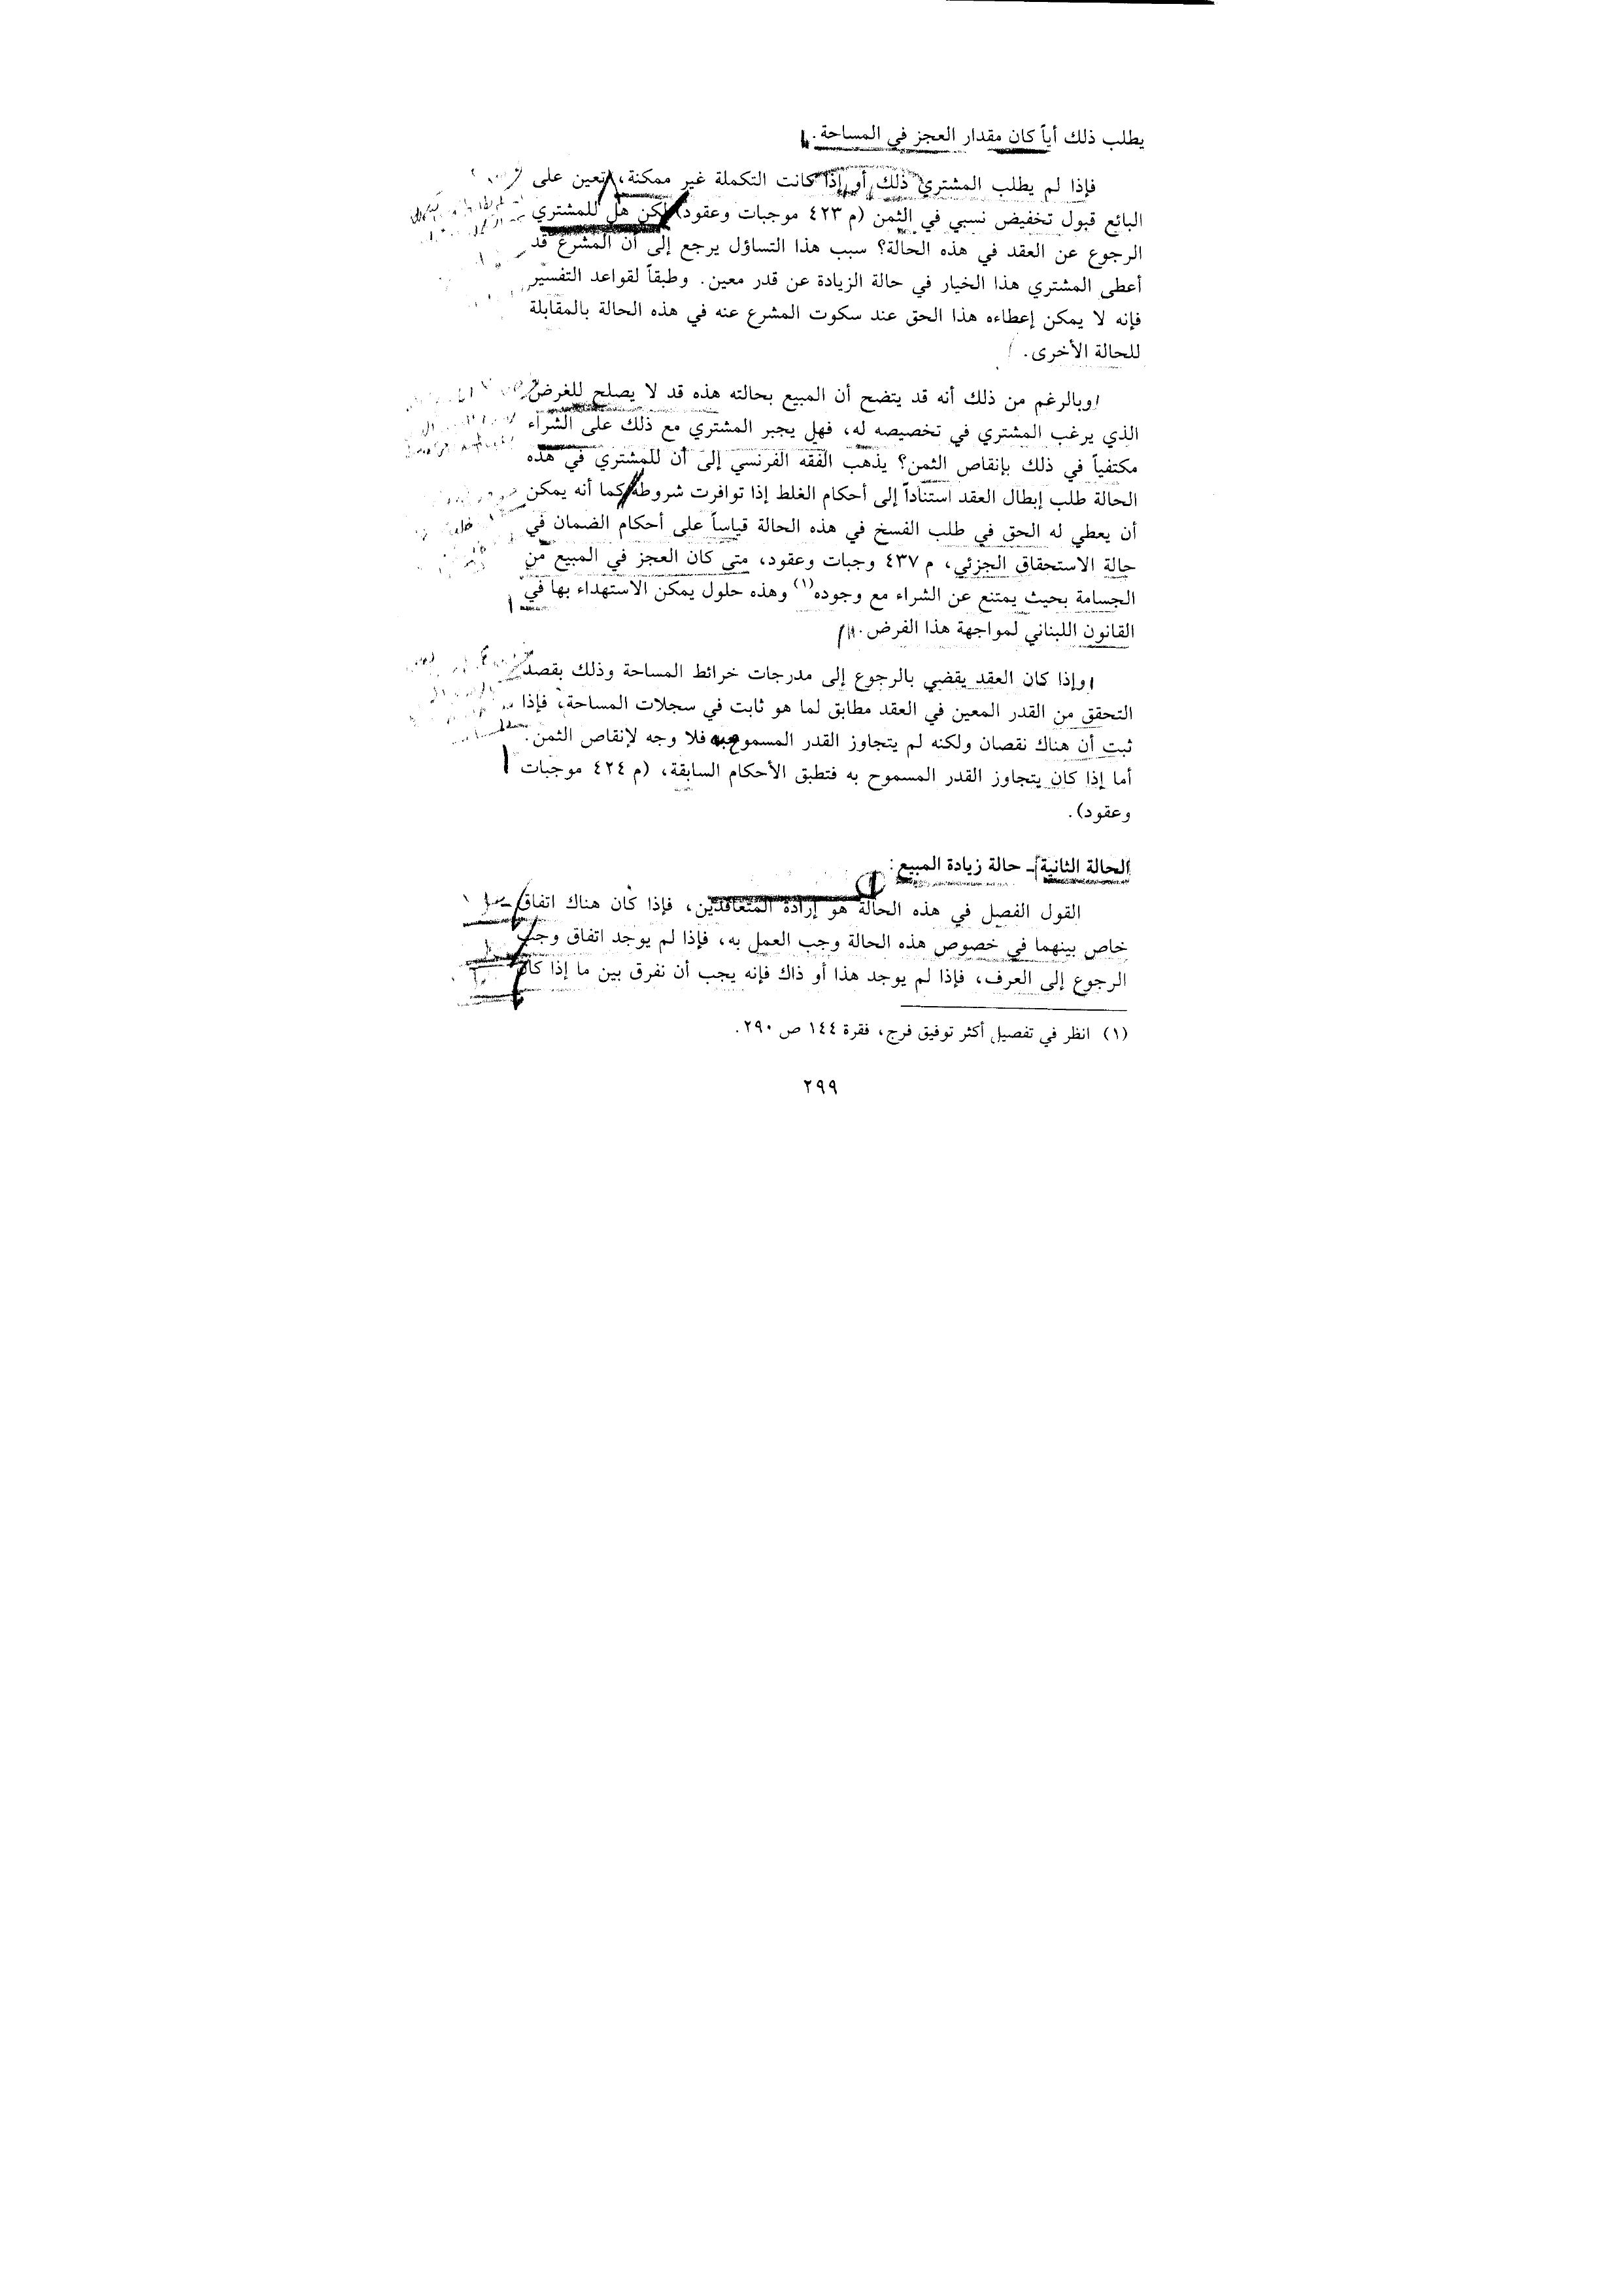 يطلب ذلك أياً كان مقدار العجز في المساحة.
فإذا لم يطلب المشتري ذلك أو إذا كانت التكملة غير ممكنة، تعين على
البائع قبول تخفيض نسبي في الثمن (م ٤٢٣ موجبات وعقود) لكن هل للمشتري
الرجوع عن العقد في هذه الحالة؟ سبب هذا التساؤل يرجع إلى أن المشرع قد
أعطى المشتري هذا الخيار في حالة الزيادة عن قدر معين. وطبقاً لقواعد التفسير
فإنه لا يمكن إعطاءه هذا الحق عند سكوت المشرع عنه في هذه الحالة بالمقابلة
للحالة الأخرى.
وبالرغم من ذلك أنه قد يتضح أن المبيع بحالته هذه قد لا يصلح للغرض
الذي يرغب المشتري في تخصيصه له، فهل يجبر المشتري مع ذلك على الشراء
مكتفياً في ذلك بإنقاص الثمن؟ يذهب الفقه الفرنسي إلى أن للمشتري في هذه
الحالة طلب إبطال العقد استناداً إلى أحكام الغلط إذا توافرت شروطه كما أنه يمكن
أن يعطي له الحق في طلب الفسخ في هذه الحالة قياساً على أحكام الضمان في
حالة الاستحقاق الجزئي، م ٤٣٧ وجبات وعقود، متى كان العجز في المبيع من
الجسامة بحيث يمتنع عن الشراء مع وجوده(١) وهذه حلول يمكن الاستهداء بها في
القانون اللبناني لمواجهة هذا الفرض.
وإذا كان العقد يقضي بالرجوع إلى مدرجات خرائط المساحة وذلك بقصد
التحقق من القدر المعين في العقد مطابق لما هو ثابت في سجلات المساحة، فإذا
ثبت أن هناك نقصان ولكنه لم يتجاوز القدر المسموح به فلا وجه لإنقاص الثمن.
أما إذا كان يتجاوز القدر المسموح به فتطبق الأحكام السابقة، (م ٤٢٤ موجبات
وعقود).
الحالة الثانية - حالة زيادة المبيع:
القول الفصل في هذه الحالة هو إرادة المتعاقدين، فإذا كان هناك اتفاق
خاص بينهما في خصوص هذه الحالة وجب العمل به، فإذا لم يوجد اتفاق وجب
الرجوع إلى العرف، فإذا لم يوجد هذا أو ذاك فإنه يجب أن نفرق بين ما إذا كان
(١) انظر في تفصيل أكثر توفيق فرج، فقرة ١٤٤ ص ٢٩٠.
٢٩٩